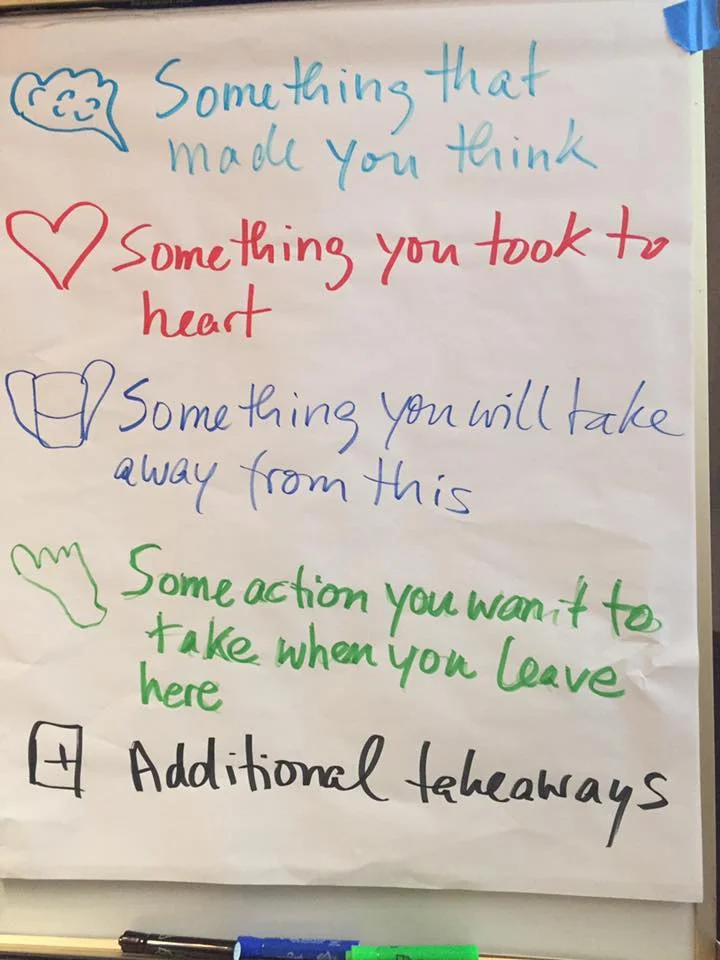 Something that
made you think
Something you took to
heart
Something you will take
away from this
Some action you want to
take when you leave
here
+ Additional takeaways